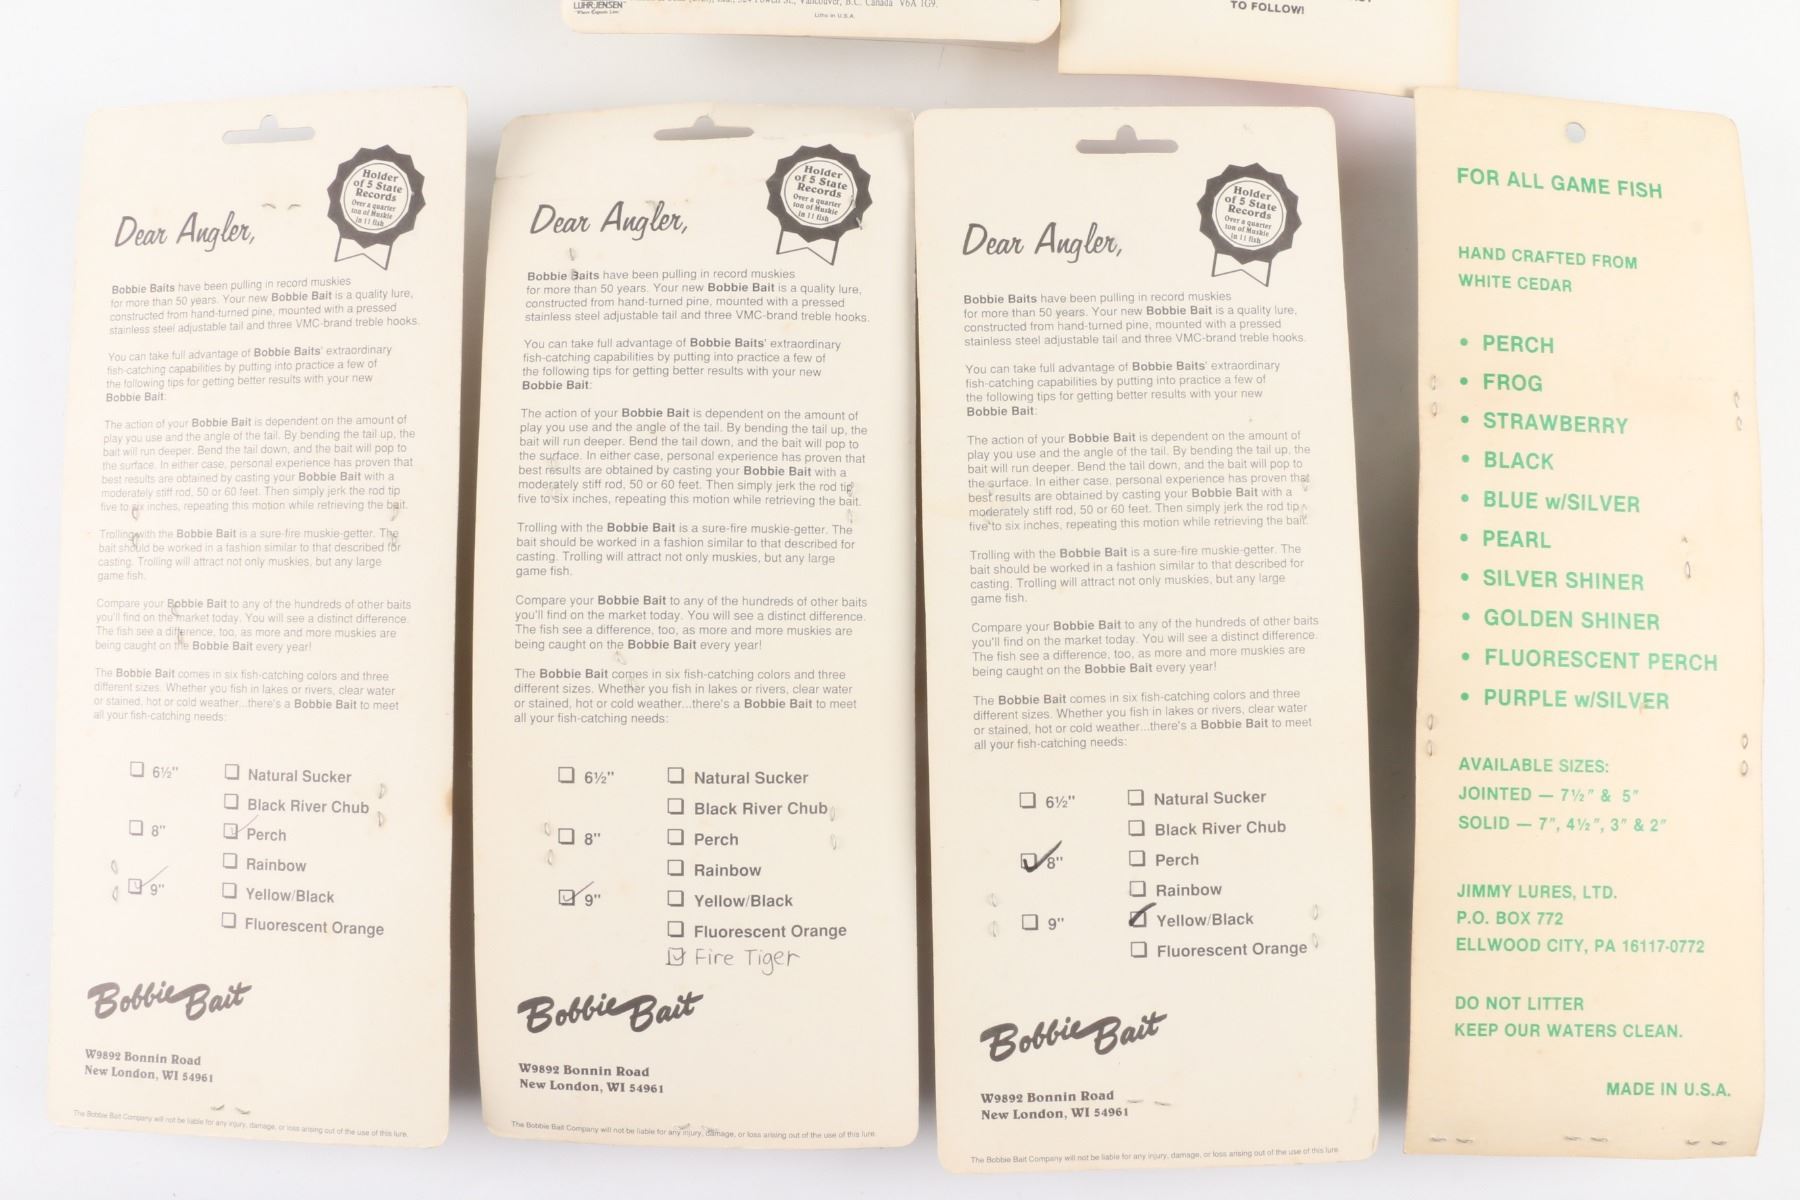 LUHR-JENSEN
Vancouver, B.C. Canada V6A 1G9.
Litho in U.S.A.
TO FOLLOW!
Holder
of 5 State
Records
Over a quarter
ton of Muskie
in 11 fish
Dear Angler,
Bobbie Baits have been pulling in record muskies
for more than 50 years. Your new Bobbie Bait is a quality lure,
constructed from hand-turned pine, mounted with a pressed
stainless steel adjustable tail and three VMC-brand treble hooks.
You can take full advantage of Bobbie Baits' extraordinary
fish-catching capabilities by putting into practice a few of
the following tips for getting better results with your new
Bobbie Bait:
The action of your Bobbie Bait is dependent on the amount of
play you use and the angle of the tail. By bending the tail up, the
bait will run deeper. Bend the tail down, and the bait will pop to
the surface. In either case, personal experience has proven that
best results are obtained by casting your Bobbie Bait with a
moderately stiff rod, 50 or 60 feet. Then simply jerk the rod tip
five to six inches, repeating this motion while retrieving the bait.
Trolling with the Bobbie Bait is a sure-fire muskie-getter. The
bait should be worked in a fashion similar to that described for
casting. Trolling will attract not only muskies, but any large
game fish.
Compare your Bobbie Bait to any of the hundreds of other baits
you'll find on the market today. You will see a distinct difference.
The fish see a difference, too, as more and more muskies are
being caught on the Bobbie Bait every year!
The Bobbie Bait comes in six fish-catching colors and three
different sizes. Whether you fish in lakes or rivers, clear water
or stained, hot or cold weather...there's a Bobbie Bait to meet
all your fish-catching needs:
6½"
8"
9"
Natural Sucker
Black River Chub
Perch
Rainbow
Yellow/Black
Fluorescent Orange
Bobbie Bait
W9892 Bonnin Road
New London, WI 54961
The Bobbie Bait Company will not be liable for any injury, damage, or loss arising out of the use of this lure.
Holder
of 5 State
Records
Over a quarter
ton of Muskie
in 11 fish
Dear Angler,
Bobbie Baits have been pulling in record muskies
for more than 50 years. Your new Bobbie Bait is a quality lure,
constructed from hand-turned pine, mounted with a pressed
stainless steel adjustable tail and three VMC-brand treble hooks.
You can take full advantage of Bobbie Baits' extraordinary
fish-catching capabilities by putting into practice a few of
the following tips for getting better results with your new
Bobbie Bait:
The action of your Bobbie Bait is dependent on the amount of
play you use and the angle of the tail. By bending the tail up, the
bait will run deeper. Bend the tail down, and the bait will pop to
the surface. In either case, personal experience has proven that
best results are obtained by casting your Bobbie Bait with a
moderately stiff rod, 50 or 60 feet. Then simply jerk the rod tip
five to six inches, repeating this motion while retrieving the bait.
Trolling with the Bobbie Bait is a sure-fire muskie-getter. The
bait should be worked in a fashion similar to that described for
casting. Trolling will attract not only muskies, but any large
game fish.
Compare your Bobbie Bait to any of the hundreds of other baits
you'll find on the market today. You will see a distinct difference.
The fish see a difference, too, as more and more muskies are
being caught on the Bobbie Bait every year!
The Bobbie Bait comes in six fish-catching colors and three
different sizes. Whether you fish in lakes or rivers, clear water
or stained, hot or cold weather...there's a Bobbie Bait to meet
all your fish-catching needs:
6½"
8"
9"
Natural Sucker
Black River Chub
Perch
Rainbow
Yellow/Black
Fluorescent Orange
Fire Tiger
Bobbie Bait
W9892 Bonnin Road
New London, WI 54961
The Bobbie Bait Company will not be liable for any injury, damage, or loss arising out of the use of this lure.
Holder
of 5 State
Records
Over a quarter
ton of Muskie
in 11 fish
Dear Angler,
Bobbie Baits have been pulling in record muskies
for more than 50 years. Your new Bobbie Bait is a quality lure,
constructed from hand-turned pine, mounted with a pressed
stainless steel adjustable tail and three VMC-brand treble hooks.
You can take full advantage of Bobbie Baits' extraordinary
fish-catching capabilities by putting into practice a few of
the following tips for getting better results with your new
Bobbie Bait:
The action of your Bobbie Bait is dependent on the amount of
play you use and the angle of the tail. By bending the tail up, the
bait will run deeper. Bend the tail down, and the bait will pop to
the surface. In either case, personal experience has proven that
best results are obtained by casting your Bobbie Bait with a
moderately stiff rod, 50 or 60 feet. Then simply jerk the rod tip
five to six inches, repeating this motion while retrieving the bait.
Trolling with the Bobbie Bait is a sure-fire muskie-getter. The
bait should be worked in a fashion similar to that described for
casting. Trolling will attract not only muskies, but any large
game fish.
Compare your Bobbie Bait to any of the hundreds of other baits
you'll find on the market today. You will see a distinct difference.
The fish see a difference, too, as more and more muskies are
being caught on the Bobbie Bait every year!
The Bobbie Bait comes in six fish-catching colors and three
different sizes. Whether you fish in lakes or rivers, clear water
or stained, hot or cold weather...there's a Bobbie Bait to meet
all your fish-catching needs:
6½"
8"
9"
Natural Sucker
Black River Chub
Perch
Rainbow
Yellow/Black
Fluorescent Orange
Bobbie Bait
W9892 Bonnin Road
New London, WI 54961
The Bobbie Bait Company will not be liable for any injury, damage, or loss arising out of the use of this lure.
FOR ALL GAME FISH
HAND CRAFTED FROM
WHITE CEDAR
• PERCH
• FROG
• STRAWBERRY
• BLACK
• BLUE w/SILVER
• PEARL
• SILVER SHINER
• GOLDEN SHINER
• FLUORESCENT PERCH
• PURPLE w/SILVER
AVAILABLE SIZES:
JOINTED — 7½" & 5"
SOLID — 7", 4½", 3" & 2"
JIMMY LURES, LTD.
P.O. BOX 772
ELLWOOD CITY, PA 16117-0772
DO NOT LITTER
KEEP OUR WATERS CLEAN.
MADE IN U.S.A.